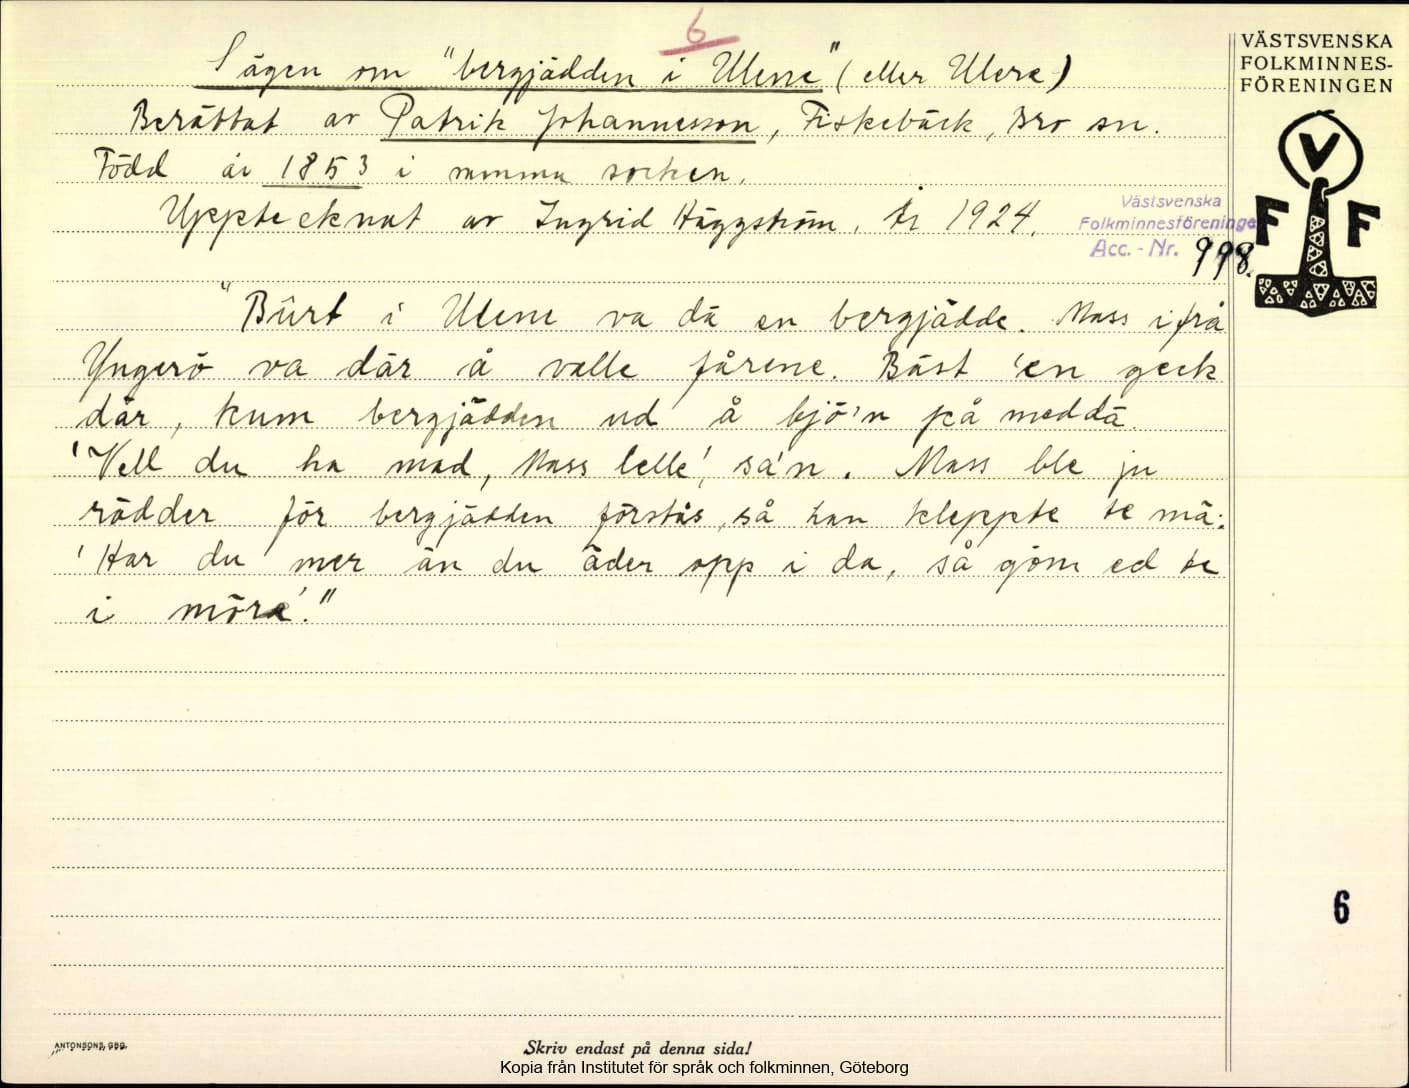 6
Sägen om "bergjädden i Ulene" (eller Ulera)
Berättat av Patrik Johannesson, Fiskebäck, Bro sn.
Född år 1853 i samma socken.
Uppteeknat av Ingrid Häggström. År 1924.
"Bürt i Ulene va dä en bergjädde. Mass ifrå
Yngerö va där å valle fårene. Bäst 'en geck
där, kum bergjädden ud å bjö'n på meddä.
'Vell du ha mad, Mass lelle', sa'n. Mass ble ju
rädder för bergjädden förstås, så han kleppte te mä:
'Har du mer än du äder opp i da, så göm ed te
i möra'."
VÄSTSVENSKA
FOLKMINNES-
FÖRENINGEN
V
F F
Västsvenska
Folkminnesföreninge
Acc.-Nr. 998.
6
ANTONSONS, GBG.
Skriv endast på denna sida!
Kopia från Institutet för språk och folkminnen, Göteborg